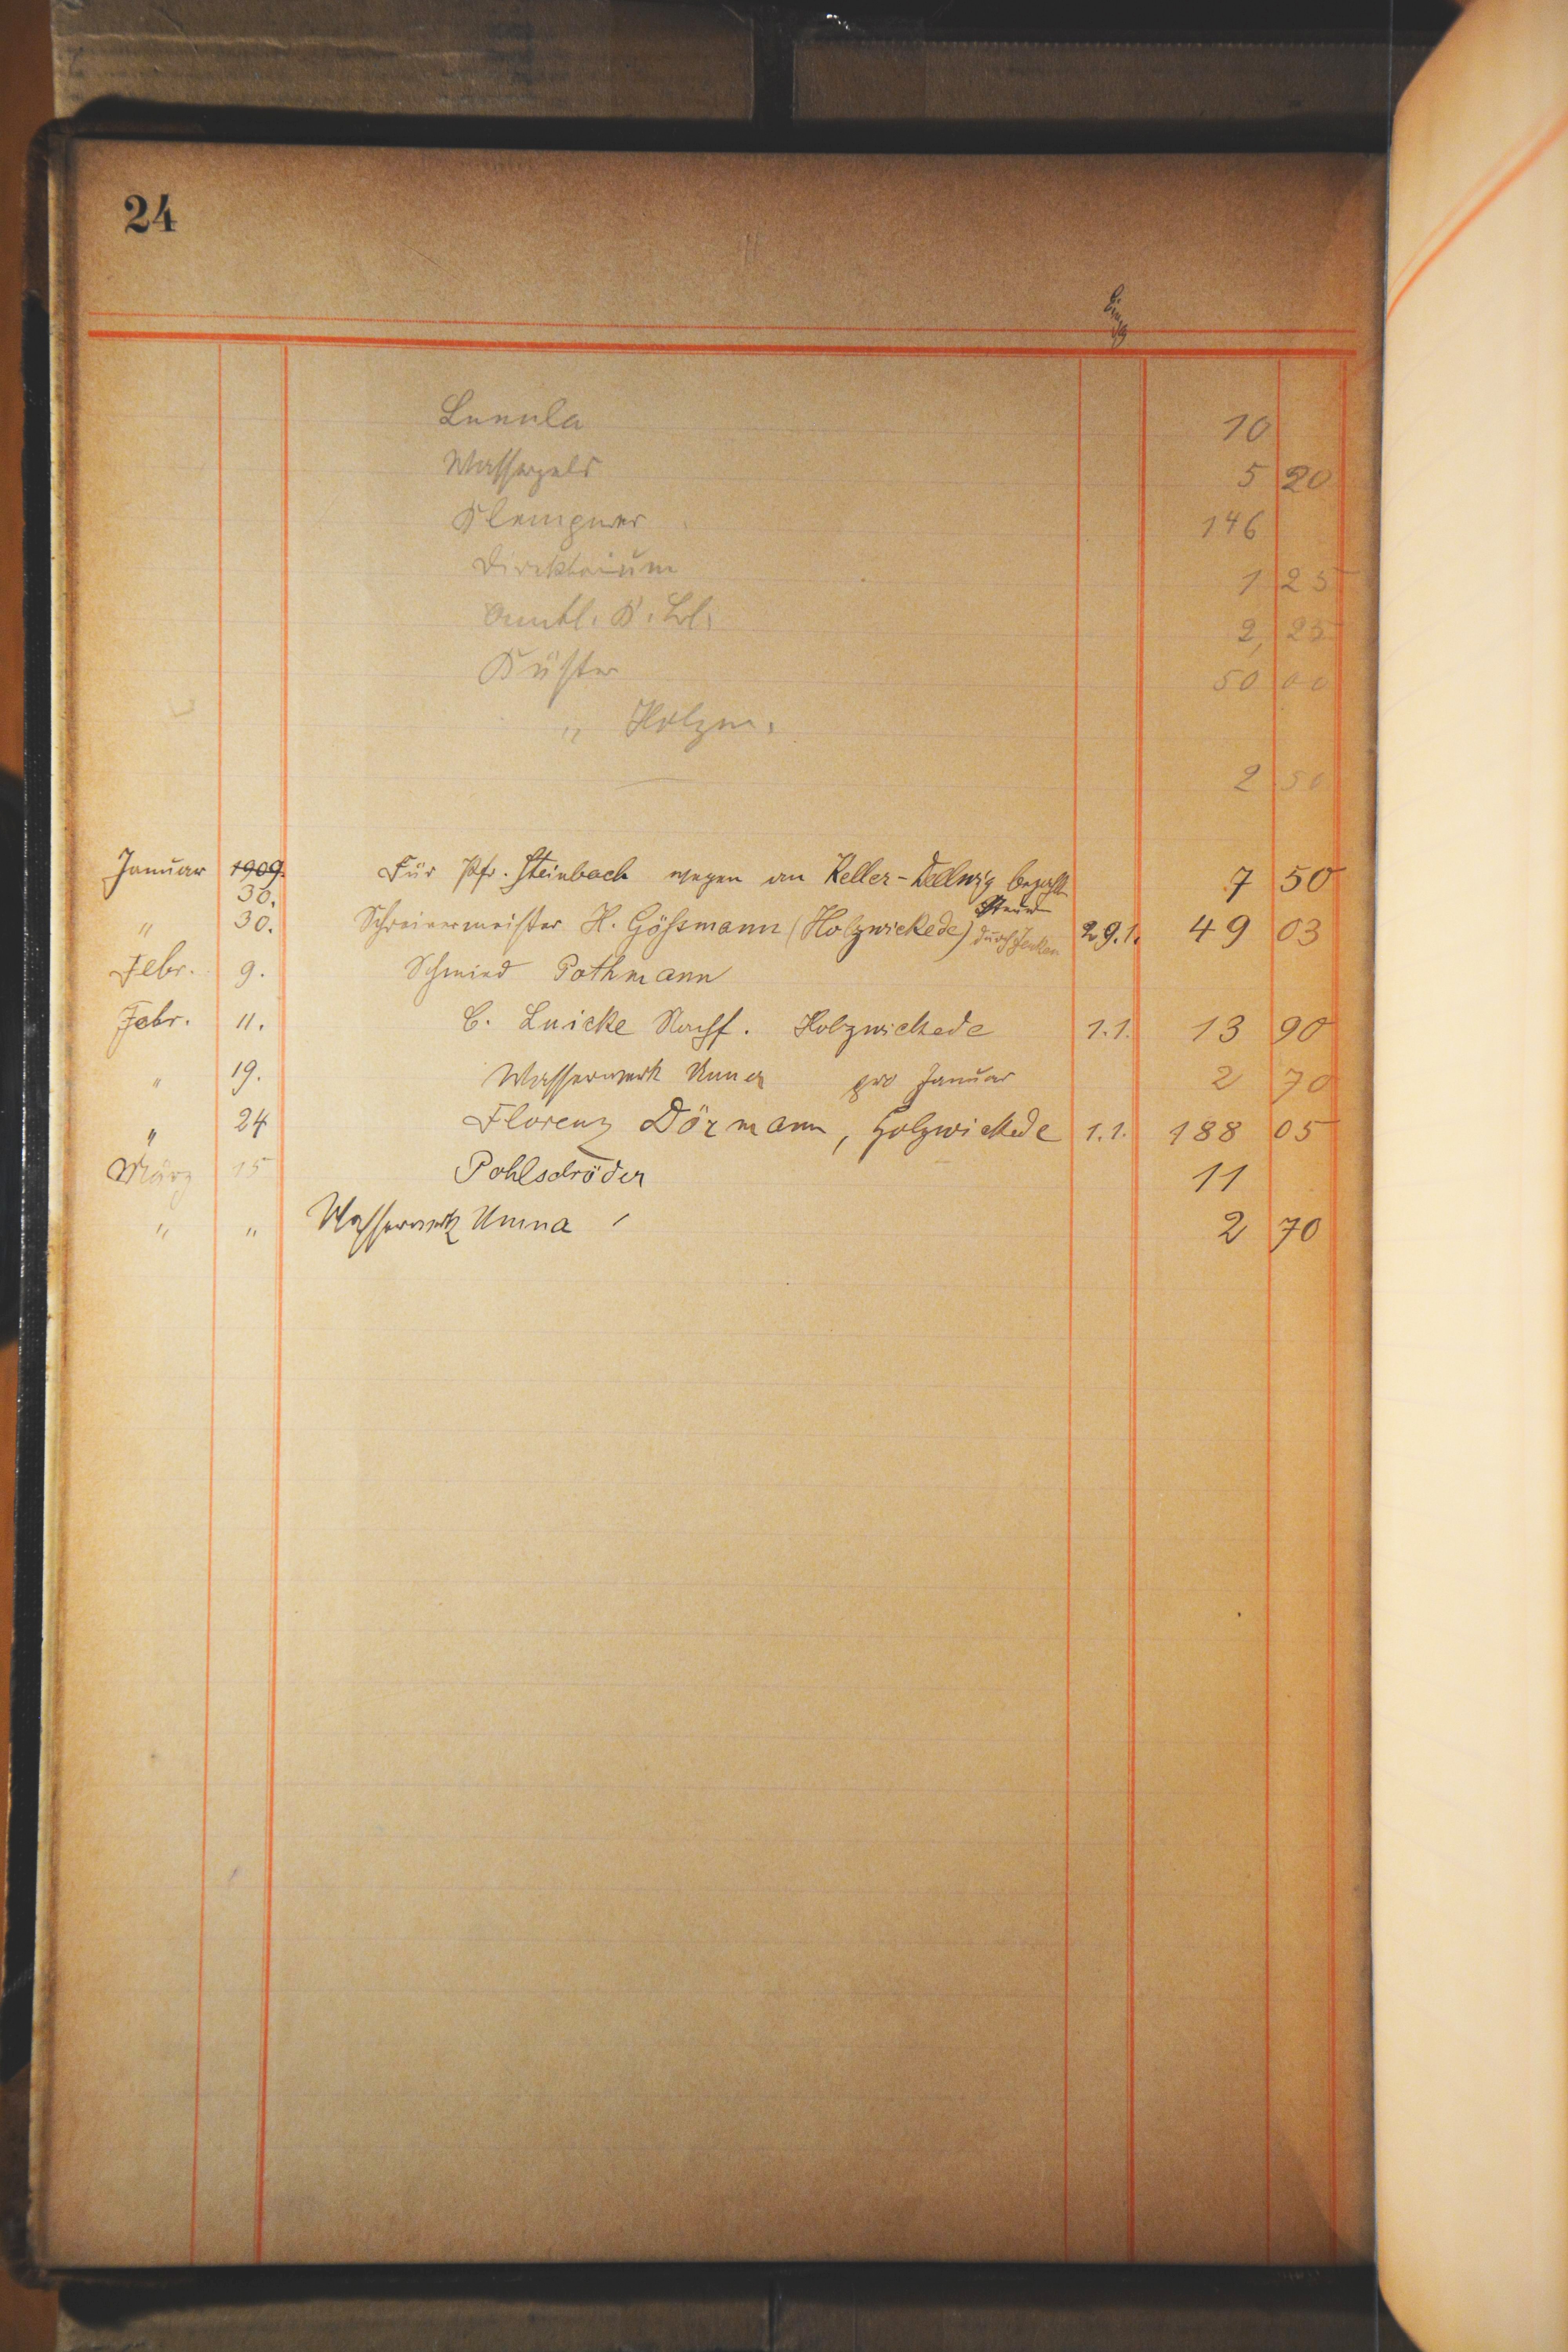 24
Lunula 10
Wassergeld 5 20
Klempner 146
Direktorium 1 25
Amtl. K. Bl. 2, 25
Küster 50 00
" Holzw.
2 50
Januar 1909. 30. Für Pfr. Steinbach wegen an Keller-Dellwig bezahlt 7 50
Steuer
" 30. Schreinermeister H. Gößmann (Holzwickede) durch 29.1. 49 03
Febr. 9. Schmied Pothmann
Febr. 11. C. Luicke Nachf. Holzwickede 1.1. 13 90
" 19. Wasserwerk Unna pro Januar 2 70
" 24 Florenz Dörmann, Holzwickede 1.1. 188 05
März 15 Pohlschröder 11
" " Wasserwerk Unna 2 70